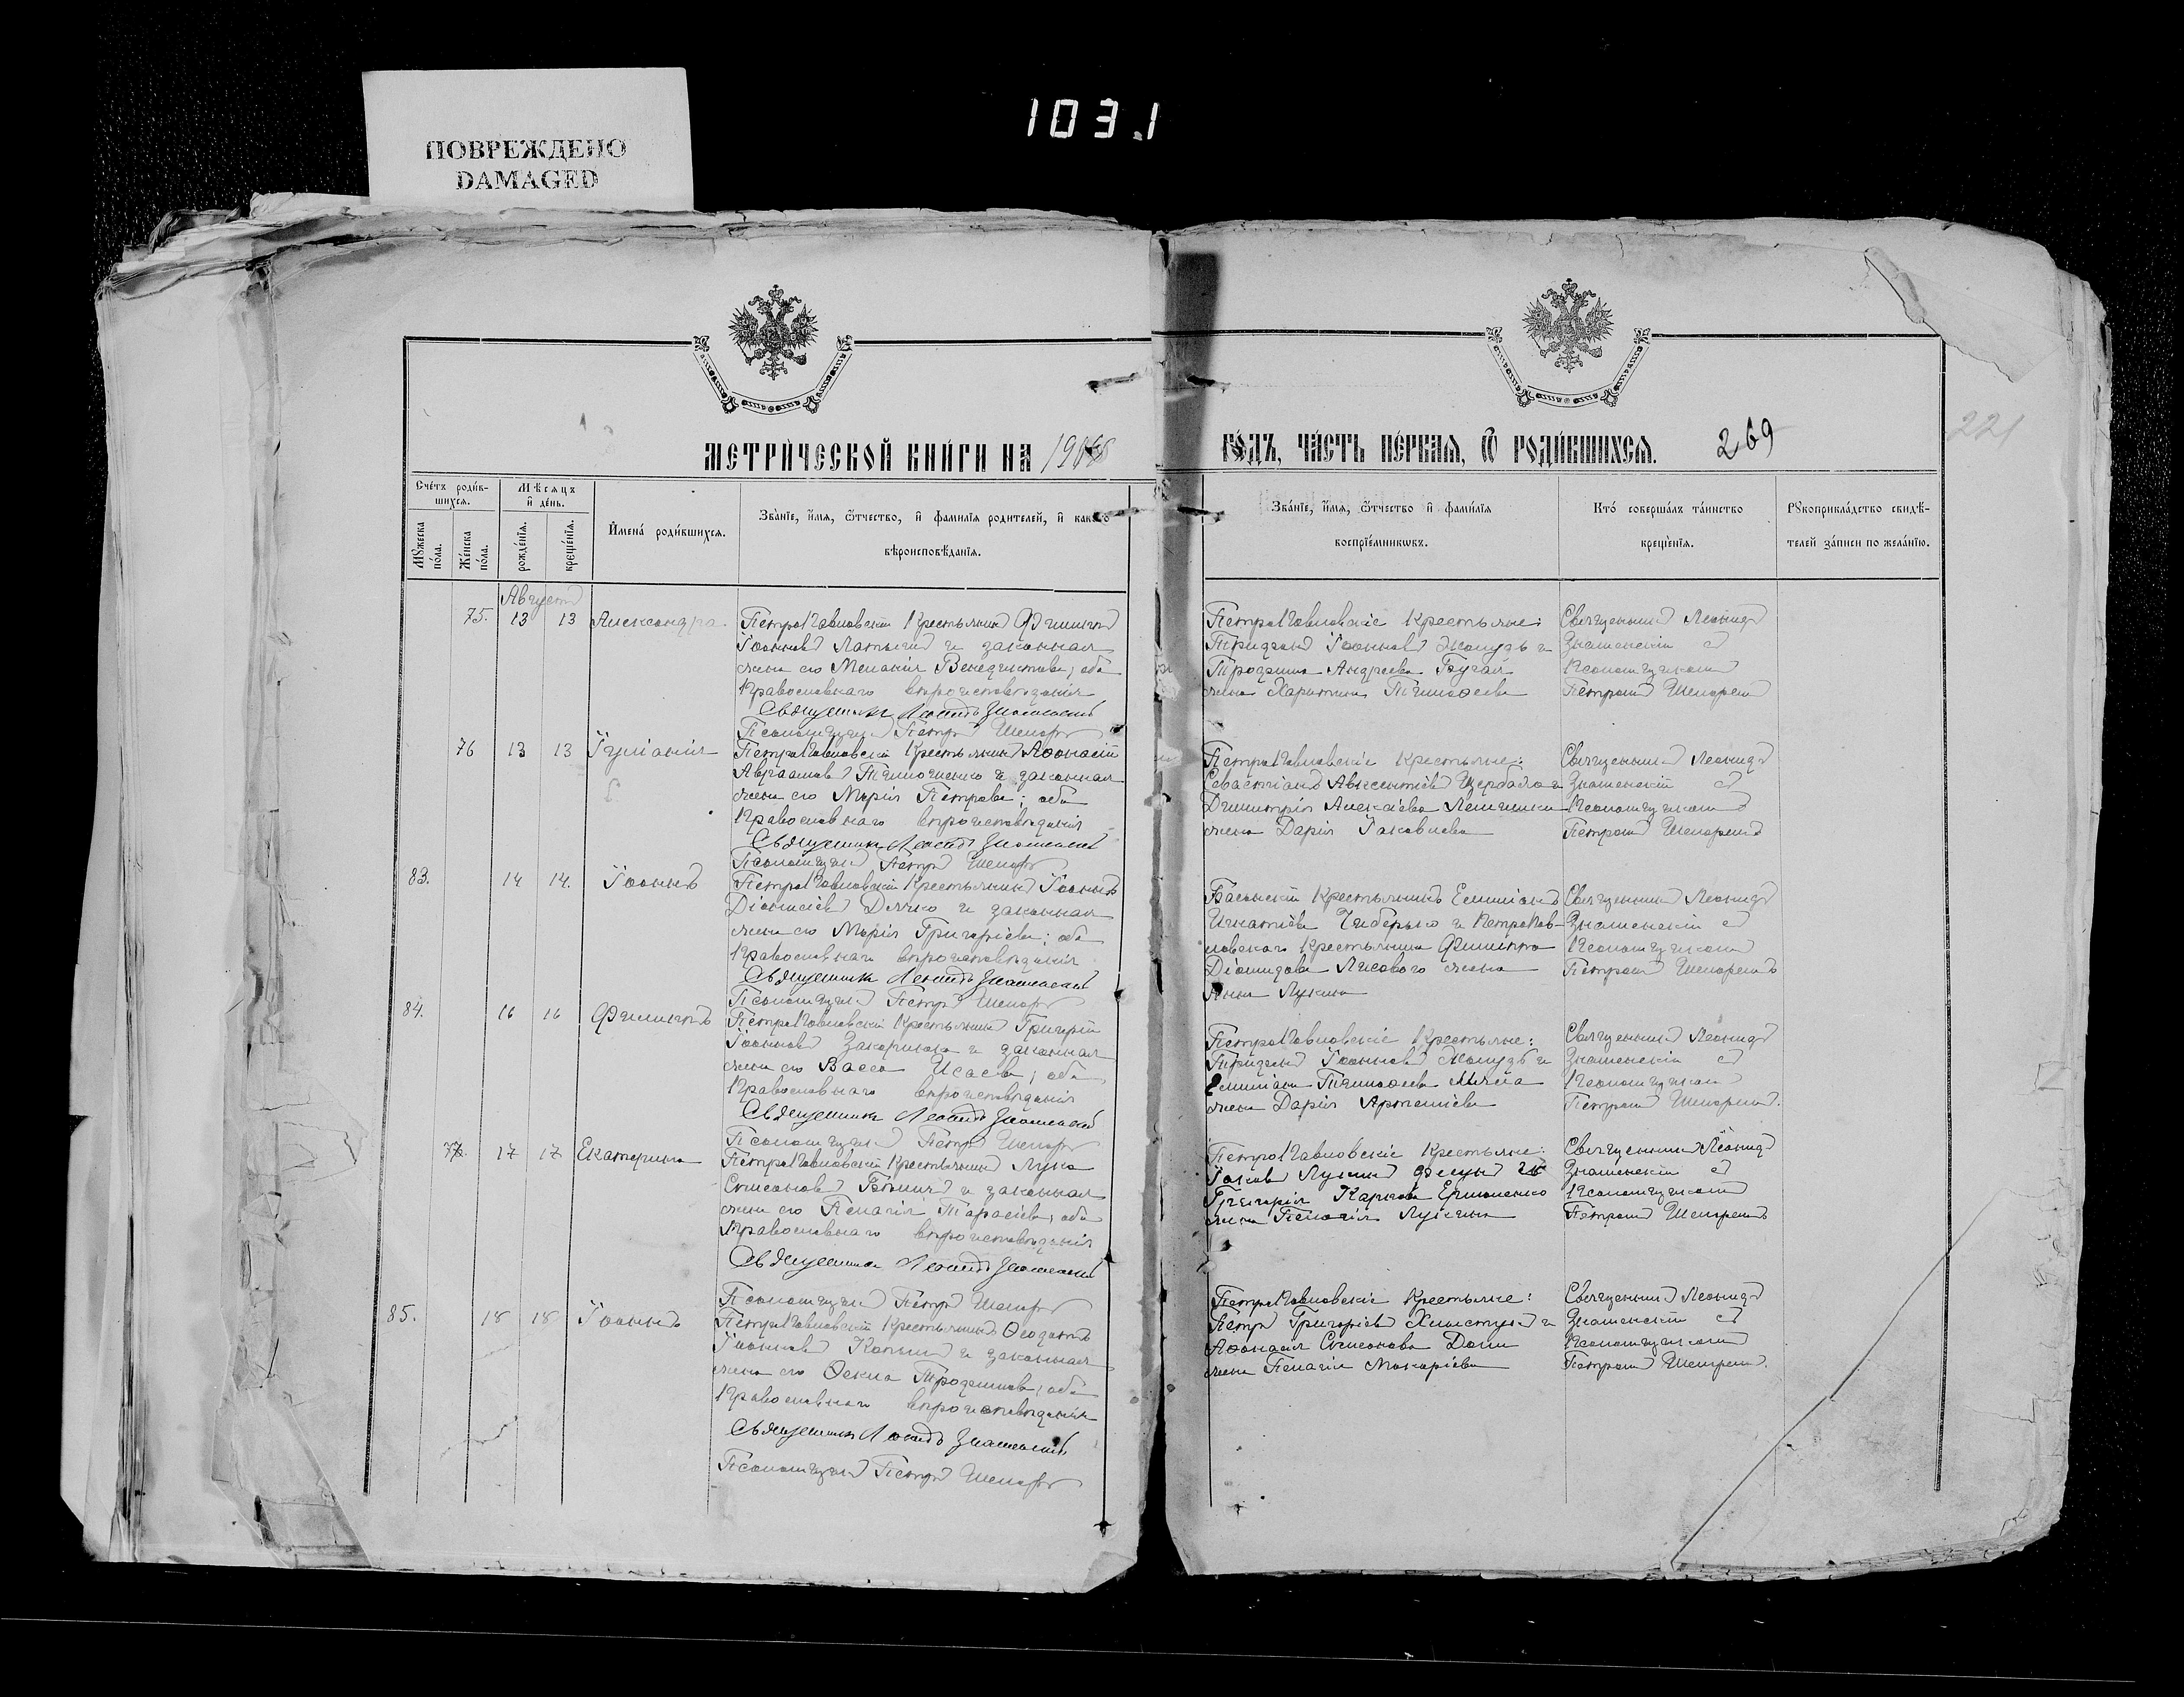 1031
ПОВРЕЖДЕНО
DAMAGED
МЕТРИ́ЧЕСКОЙ КНИ́ГИ НА
ГО́ДЪ, ЧА́СТЬ ПЕ́РВАЯ, Ѡ РОДИ́ВШИХСЯ.
269
221
Сче́тъ роди́в-
шихся.
Мѣ́сяцъ
и҆ де́нь.
Му́жеска
по́ла.
Же́нска
по́ла.
рожде́нїѧ.
креще́нїѧ.
И҆мена́ роди́вшихсѧ.
Зва́нїе, и҆́мѧ, ѻ҆́тчество, и҆ фами́лїѧ роди́телей, и҆ како́гѡ
вѣроисповѣ́данїѧ.
Зва́нїе, и҆́мѧ, ѻ҆́тчество и҆ фами́лїѧ
воспрїе́мникѡвъ.
Кто́ соверша́лъ та́инство
креще́нїѧ.
Рꙋкоприкла́дство свидѣ́-
телей за́писи по жела́нїю.
Августъ
75. 13 13 Александра.
ПетроПавловскій Крестьянинъ Филиппъ
Іоанновъ и законная
жена его Меланія Венедиктова; оба
Православнаго вѣроисповѣданія
Священникъ Леонидъ Знаменскій
Псаломщикъ Петръ
ПетроПавловскіе Крестьяне:
Іоанновъ и
Трофима Андреева Бугая
жена Харитина Тимофеева
Священникъ Леонидъ
Знаменскій съ
Псаломщикомъ
Петромъ
76 13 13 Іуліанія
ПетроПавловскій Крестьянинъ Афонасій
Авраамовъ Тимошенко и законная
жена его Марія Петрова; оба
Православнаго вѣроисповѣданія
Священникъ Леонидъ Знаменскій
Псаломщикъ Петръ
ПетроПавловскіе Крестьяне:
Севастіанъ Авксентіевъ Щербакъ и
Димитрія Алексіева
жена Дарія Іаковлева
Священникъ Леонидъ
Знаменскій съ
Псаломщикомъ
Петромъ
83. 14 14. Іоаннъ
ПетроПавловскій Крестьянинъ Іоаннъ
Діонисіевъ Дячко и законная
жена его Марія Григоріева; оба
Православнаго вѣроисповѣданія
Священникъ Леонидъ Знаменскій
Псаломщикъ Петръ
Крестьянинъ Емиліанъ
Игнатіевъ и ПетроПав-
ловскаго Крестьянина Филиппа
Діомидова Лисового жена
Анна Лукина
Священникъ Леонидъ
Знаменскій съ
Псаломщикомъ
Петромъ
84. 16 16 Филиппъ
ПетроПавловскій Крестьянинъ Григорій
Іоанновъ и законная
жена его Васса Исаева; оба
Православнаго вѣроисповѣданія
Священникъ Леонидъ Знаменскій
Псаломщикъ Петръ
ПетроПавловскіе Крестьяне:
Іоанновъ и
Емиліана Тимофеева
жена Дарія Артеміева
Священникъ Леонидъ
Знаменскій съ
Псаломщикомъ
Петромъ
77. 17 17 Екатерина
ПетроПавловскій Крестьянинъ Лука
Симеоновъ и законная
жена его Пелагія Тарасіева, оба
Православнаго вѣроисповѣданія
Священникъ Леонидъ Знаменскій
Псаломщикъ Петръ
ПетроПавловскіе Крестьяне:
Іаковъ Лукинъ и
Григорія Карпова Ермоленко
жена Пелагія Лукина
Священникъ Леонидъ
Знаменскій съ
Псаломщикомъ
Петромъ
85. 18 18 Іоаннъ
ПетроПавловскій Крестьянинъ Ѳеодотъ
Іоанновъ и законная
жена его Ѳекла Трофимова, оба
Православнаго вѣроисповѣданія
Священникъ Леонидъ Знаменскій
Псаломщикъ Петръ
ПетроПавловскіе Крестьяне:
Петръ Григоріевъ и
Афонасія Симеонова
жена Пелагія Макаріева
Священникъ Леонидъ
Знаменскій съ
Псаломщикомъ
Петромъ